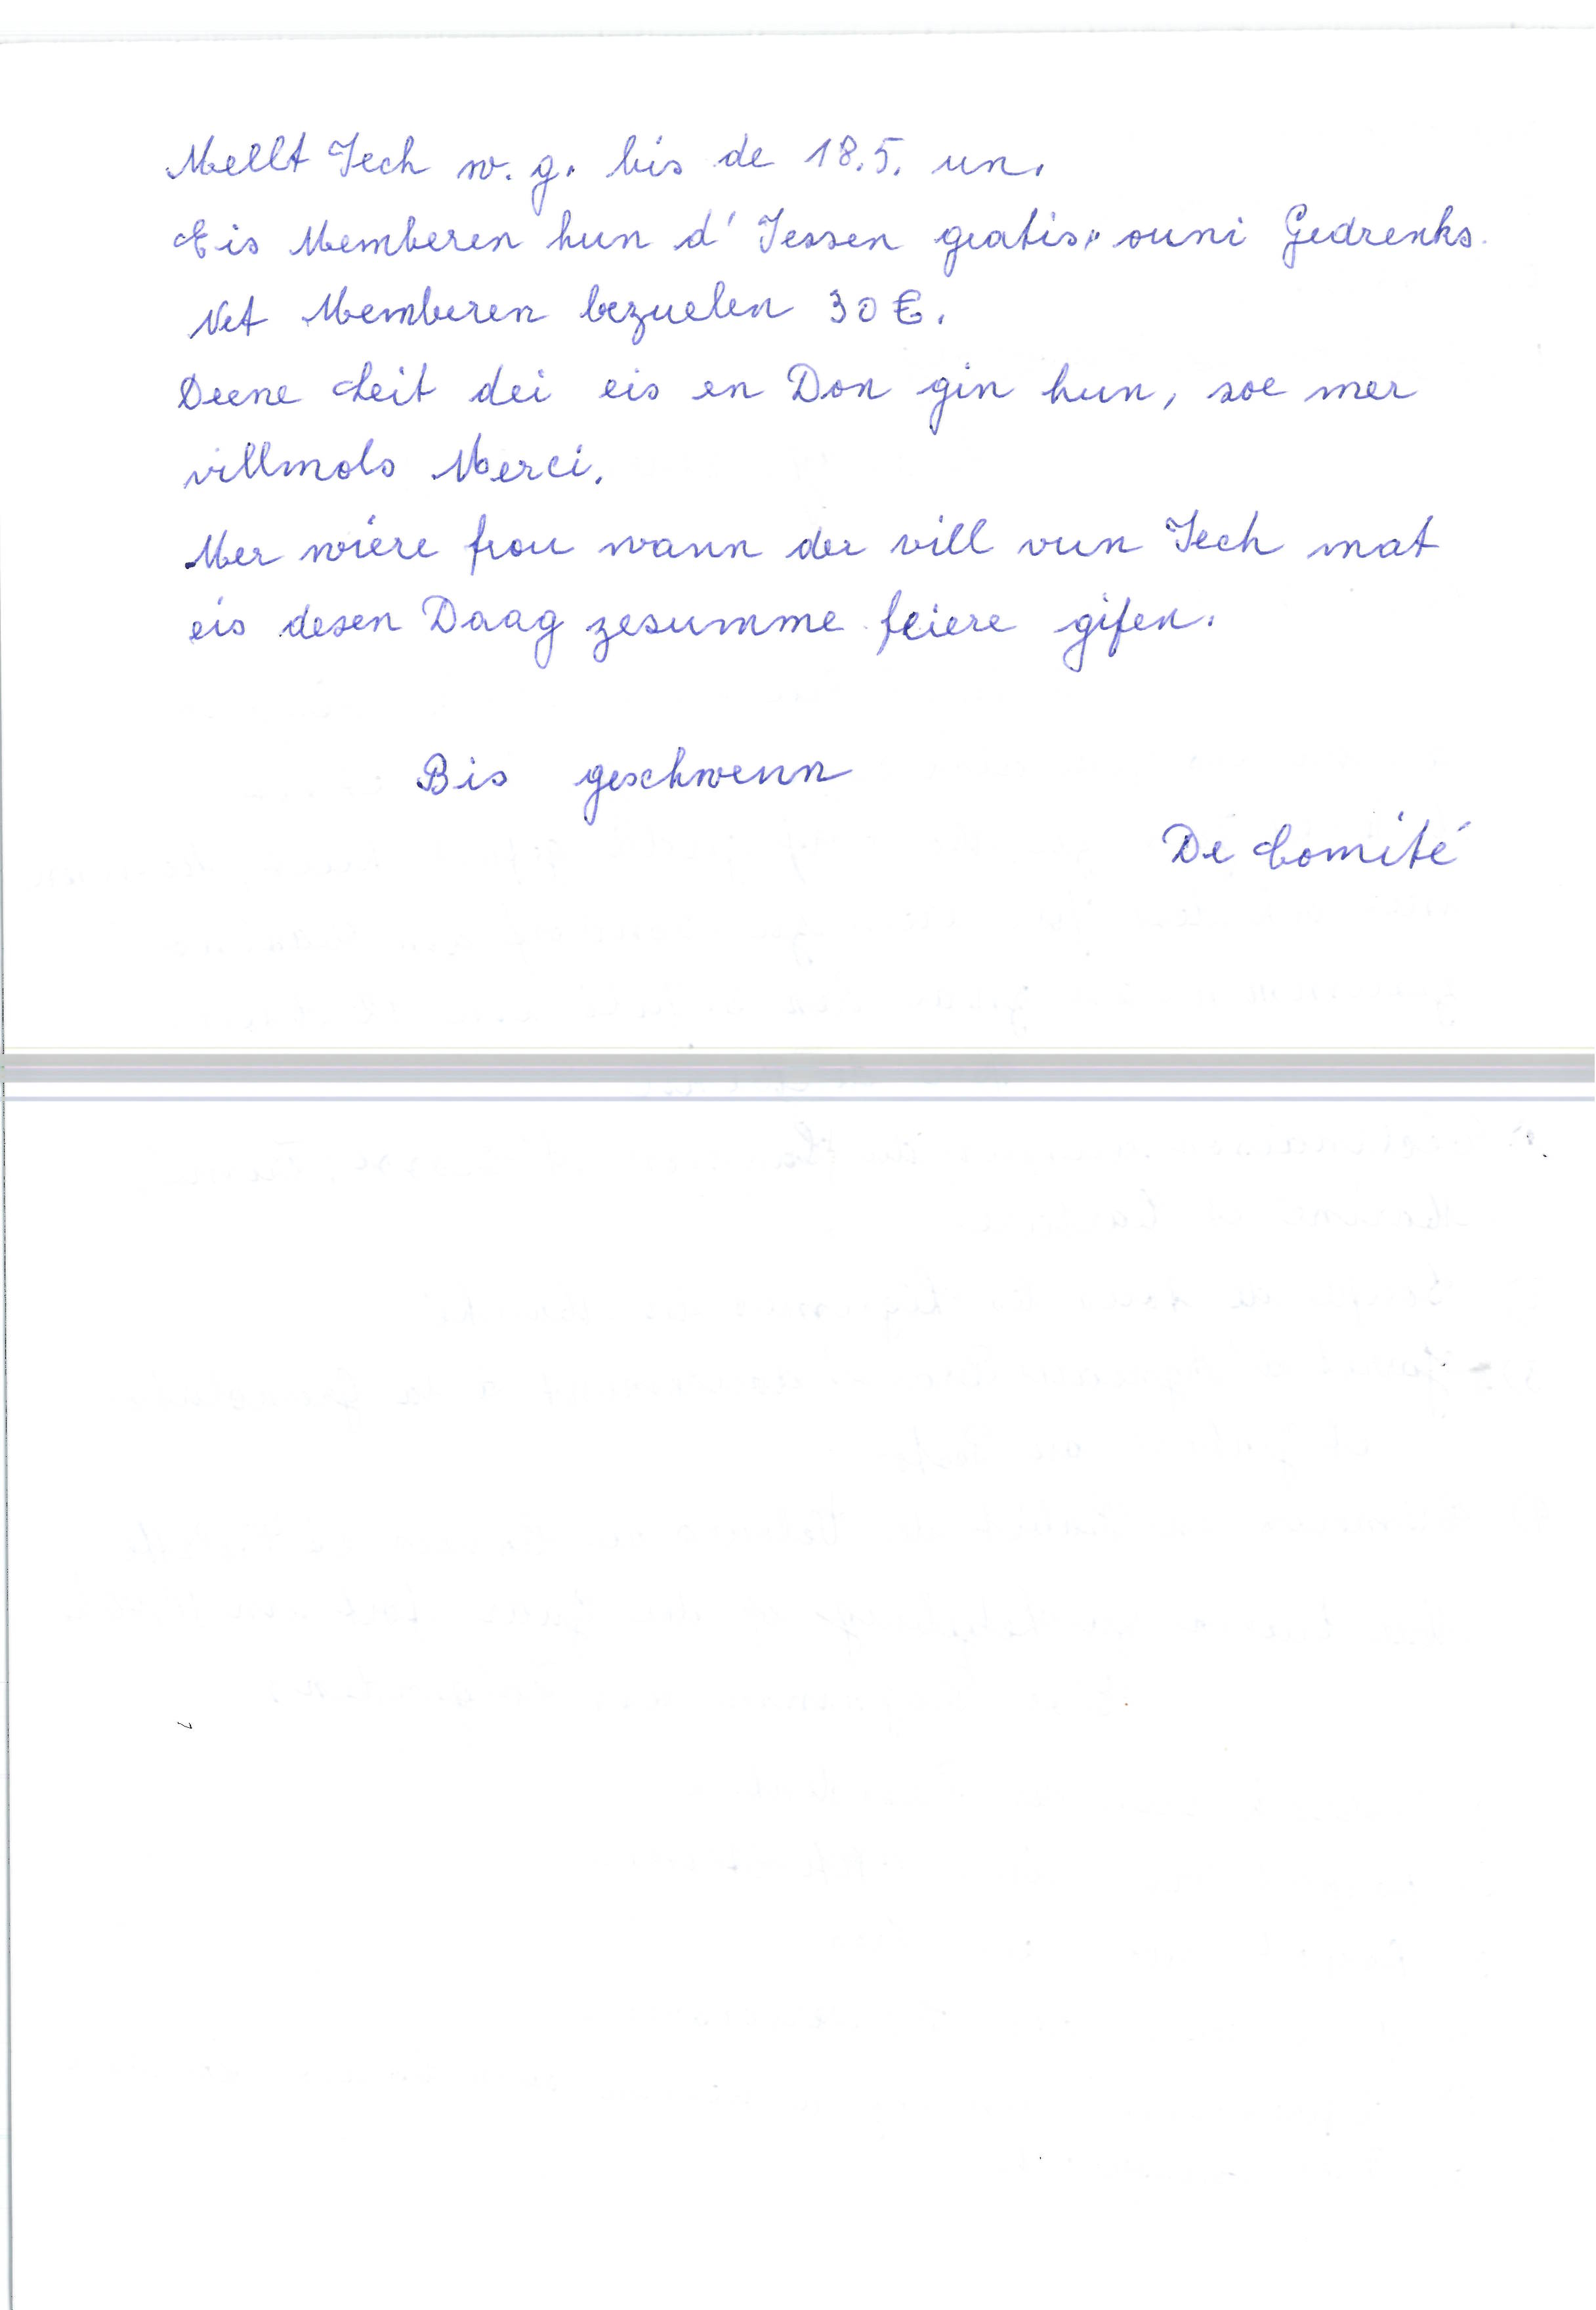 Mellt Iech w. g. bis de 18.5. un.
Eis Memberen hun d' Iessen gratis, ouni Gedrenks.
Net Memberen bezuelen 30 €.
Deene Leit dei eis en Don gin hun, soe mer
villmols Merci.
Mer wiere frou wann der vill vun Iech mat
eis desen Daag zesumme feiere gifen.
Bis geschwenn
De Comité